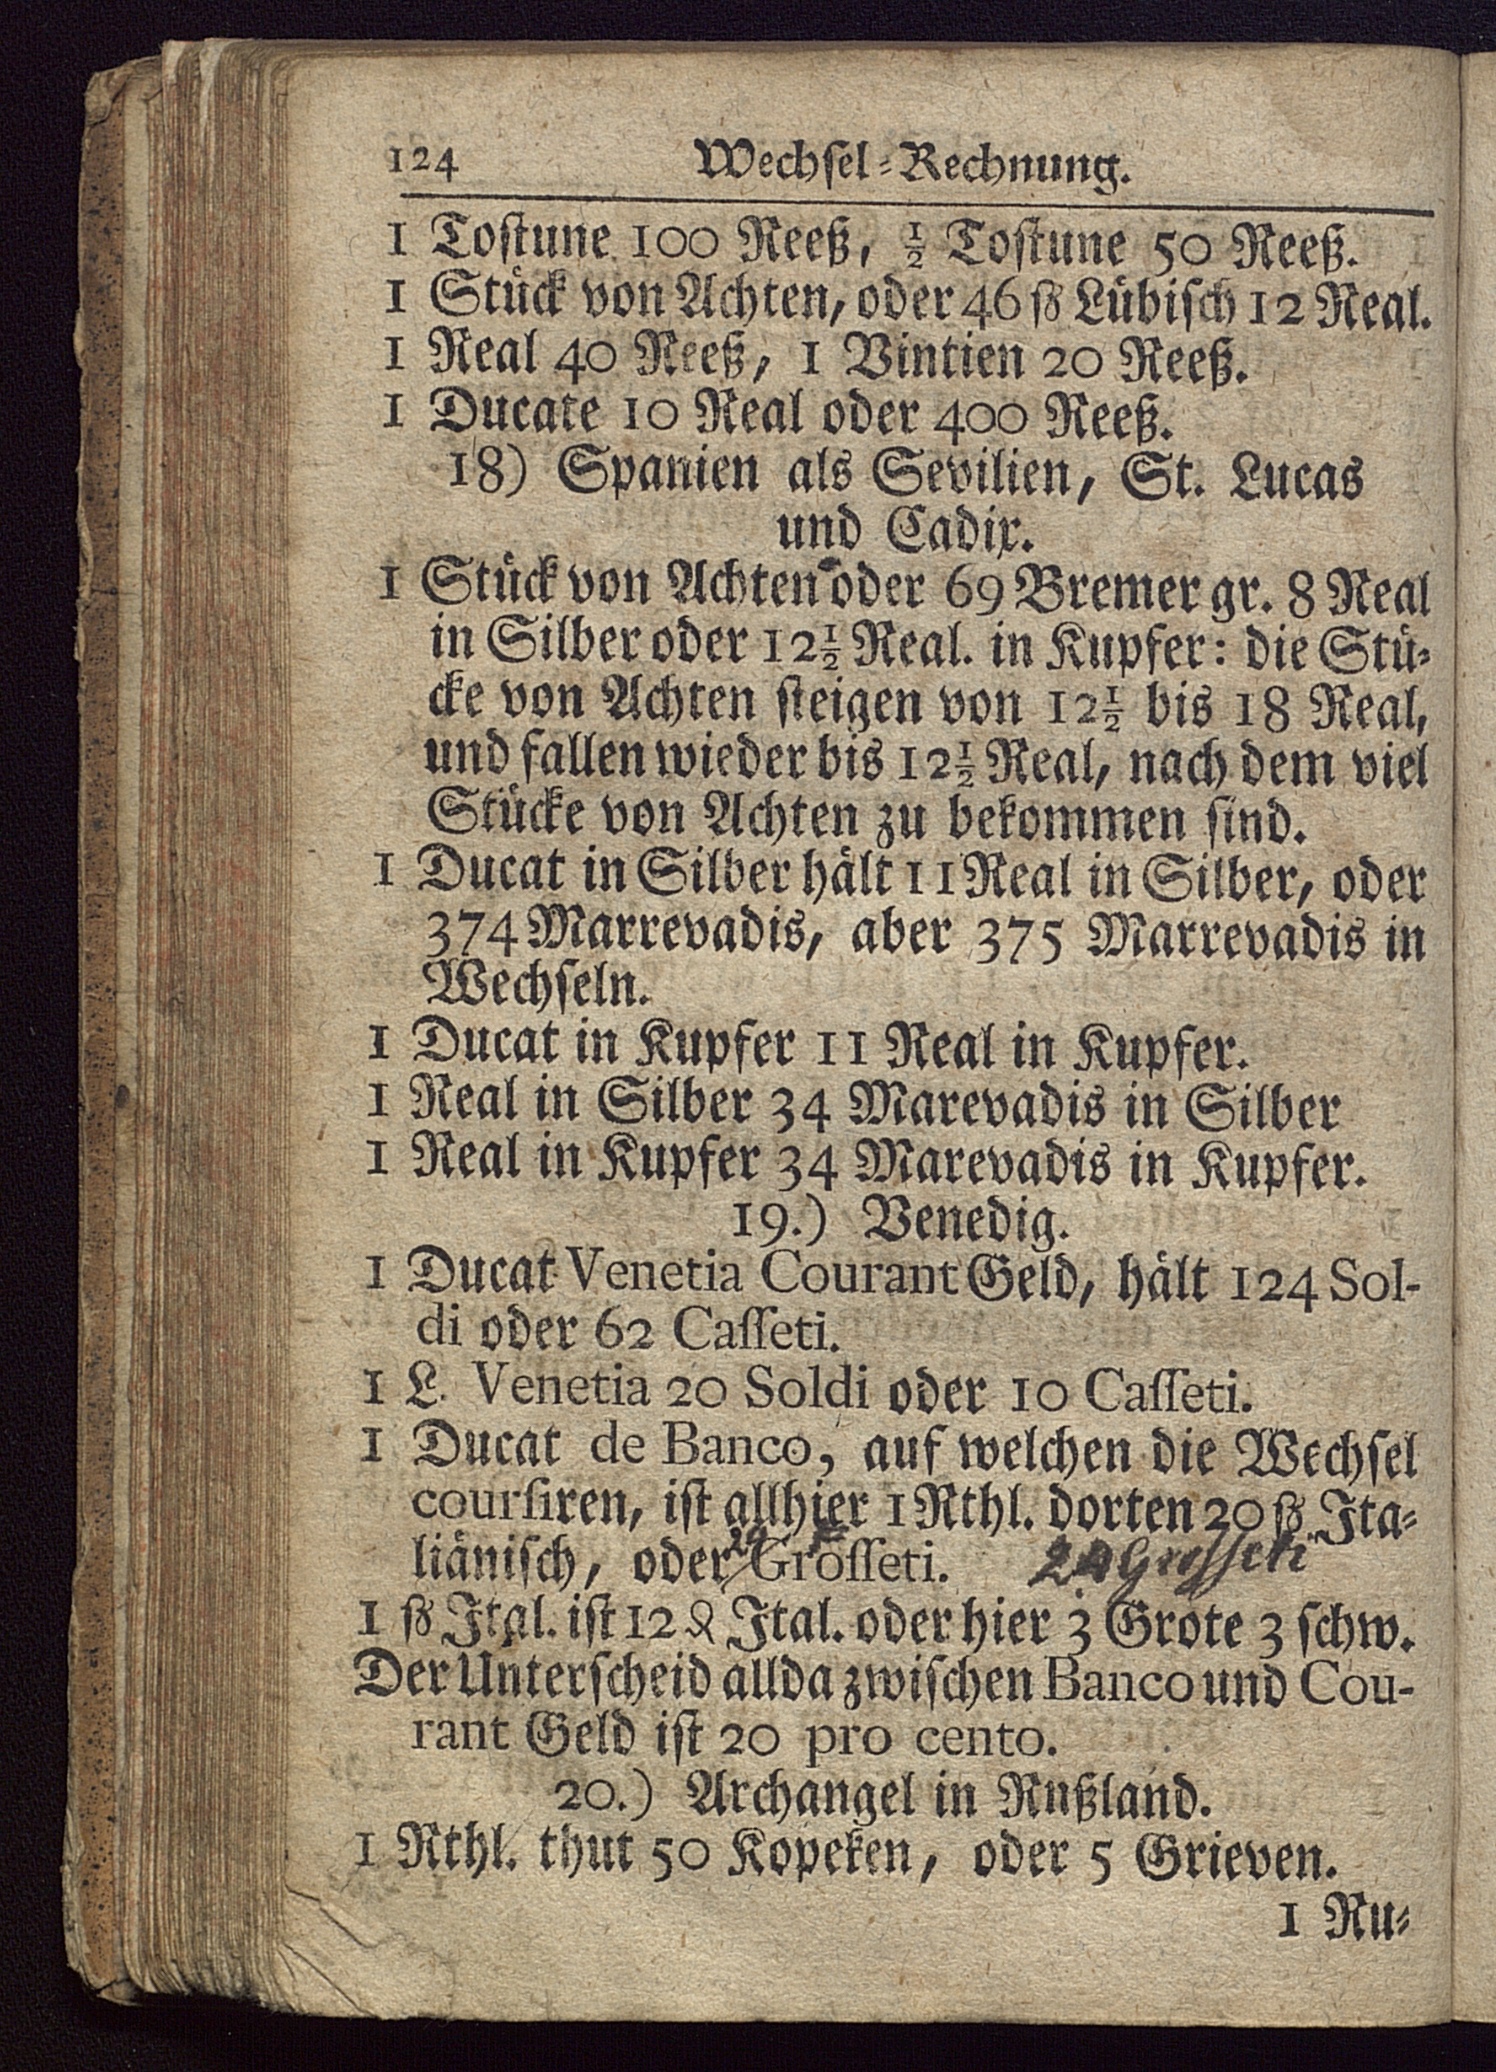 124 Wechſel-Rechnung.
1 Toſtune 100 Reeß, ½ Toſtune 50 Reeß.
1 Stück von Achten, oder 46 ß Lübiſch 12 Real.
1 Real 40 Reeß, 1 Vintien 20 Reeß.
1 Ducate 10 Real oder 400 Reeß.
18) Spanien als Sevilien, St. Lucas
und Cadix.
1 Stück von Achten oder 69 Bremer gr. 8 Real
in Silber oder 12½ Real. in Kupfer: die Stü-
cke von Achten ſteigen von 12½ bis 18 Real,
und fallen wieder bis 12½ Real, nach dem viel
Stücke von Achten zu bekommen ſind.
1 Ducat in Silber hält 11 Real in Silber, oder
374 Marrevadis, aber 375 Marrevadis in
Wechſeln.
1 Ducat in Kupfer 11 Real in Kupfer.
1 Real in Silber 34 Marevadis in Silber
1 Real in Kupfer 34 Marevadis in Kupfer.
19.) Venedig.
1 Ducat Venetia Courant Geld, hält 124 Sol-
di oder 62 Caſſeti.
1 L. Venetia 20 Soldi oder 10 Caſſeti.
1 Ducat de Banco, auf welchen die Wechſel
courſiren, iſt allhier 1 Rthl. dorten 20 ß Ita-
liäniſch, oder 24 Groſſeti. 24 Grosseti
1 ß Ital. iſt 12 ₰ Ital. oder hier 3 Grote 3 ſchw.
Der Unterſcheid allda zwiſchen Banco und Cou-
rant Geld iſt 20 pro cento.
20.) Archangel in Rußland.
1 Rthl. thut 50 Kopeken, oder 5 Grieven.
1 Ru-